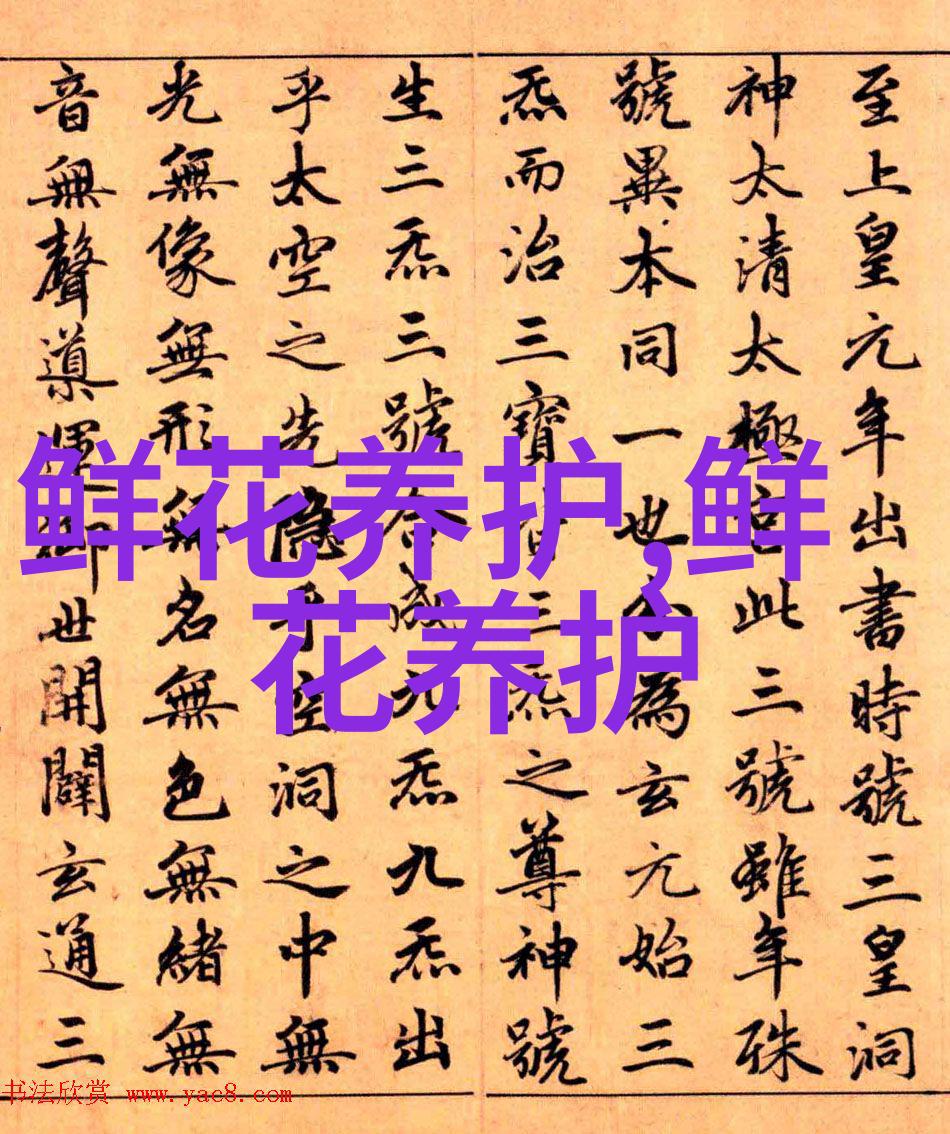 至上皇元年出書時號三皇洞
神太清太極宮此三號雖年殊
號異本同一也分為玄元始三
炁而治三寶三炁之尊神號
生三炁三號合成九炁九炁出
乎太空之先隱乎空洞之中無
光無像無形無名無色無緒無
音無聲導運御世開闢玄通三
鲜花养护,鲜
花养护
书法欣赏 www.yac8.com